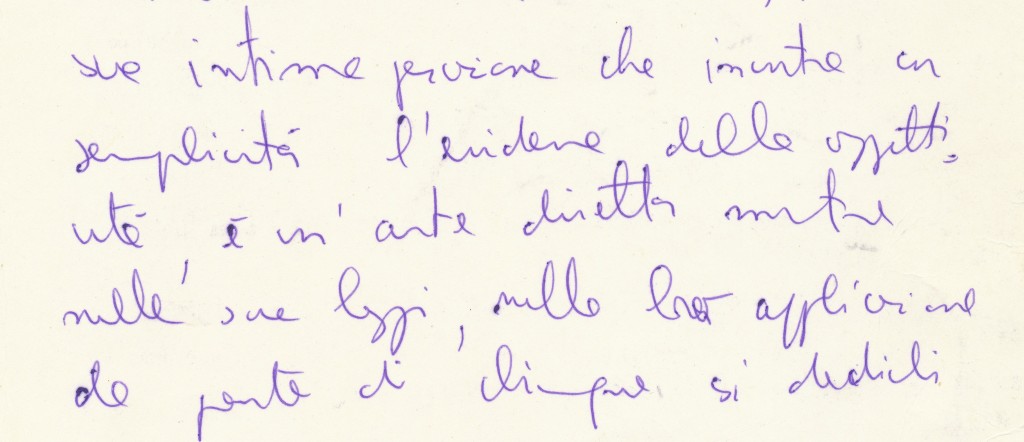 sua intima percezione che incontra in
semplicità l'evidenza della oggetti=
vità è un'arte diretta
nelle sue leggi, nella loro applicazione
da parte di chiunque si dedichi